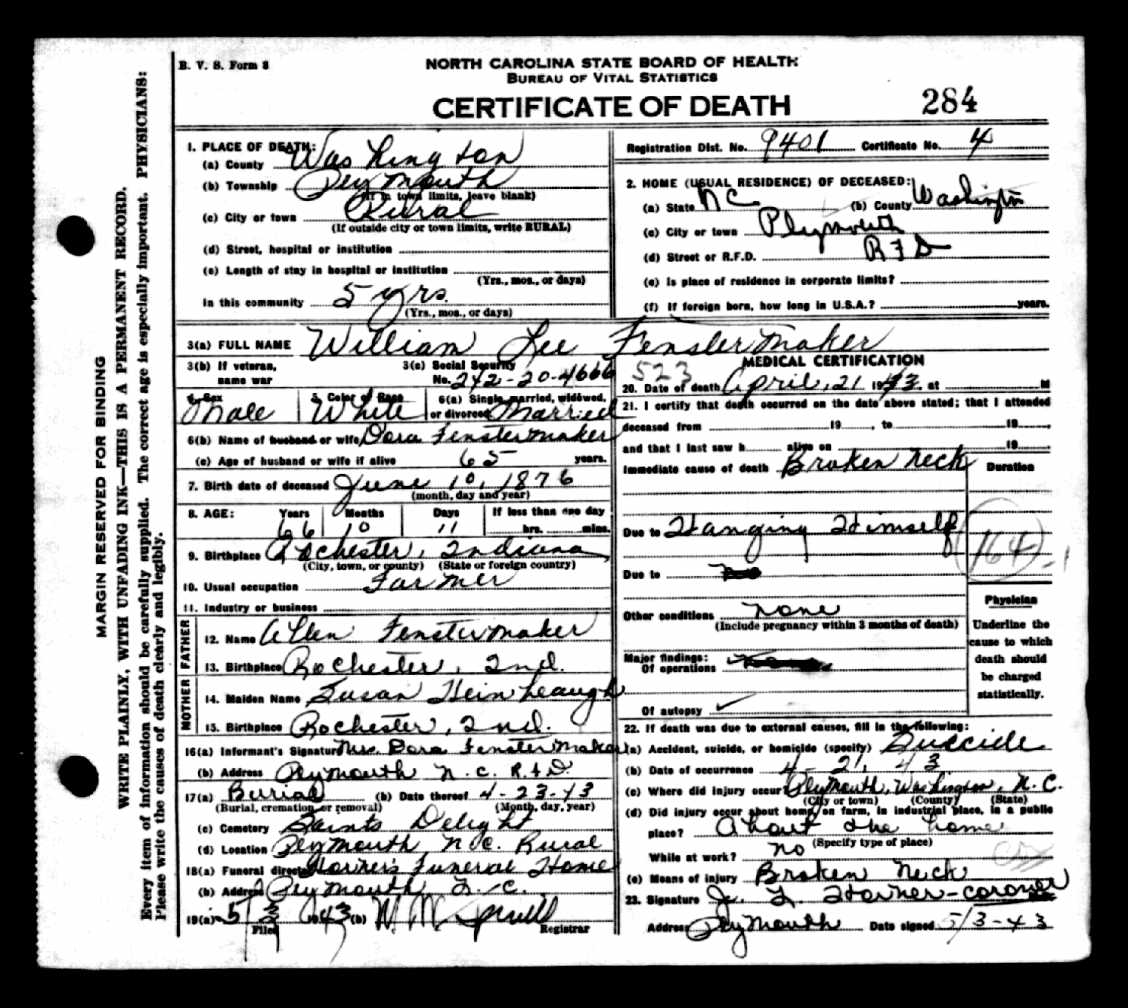 B. V. S. Form 8
NORTH CAROLINA STATE BOARD OF HEALTH
BUREAU OF VITAL STATISTICS
CERTIFICATE OF DEATH
284
MARGIN RESERVED FOR BINDING
WRITE PLAINLY, WITH UNFADING INK—THIS IS A PERMANENT RECORD.
Every item of information should be carefully supplied. The correct age is especially important. PHYSICIANS:
Please write the causes of death clearly and legibly.
1. PLACE OF DEATH:
(a) County Washington
(b) Township Plymouth
(If in town limits, leave blank)
(c) City or town Rural
(If outside city or town limits, write RURAL)
(d) Street, hospital or institution
(e) Length of stay in hospital or institution
(Yrs., mos., or days)
In this community 5 yrs.
(Yrs., mos., or days)
Registration Dist. No. 9401 Certificate No. 4
2. HOME (USUAL RESIDENCE) OF DECEASED:
(a) State NC (b) County Washington
(c) City or town Plymouth
(d) Street or R.F.D. RFD
(e) Is place of residence in corporate limits?
(f) If foreign born, how long in U.S.A.? years.
3(a) FULL NAME William Lee Fenstermaker
3(b) If veteran, name war
3(c) Social Security No. 242-20-4666
4. Sex Male
5. Color or Race White
6(a) Single, married, widowed, or divorced Married
6(b) Name of husband or wife Dora Fenstermaker
(c) Age of husband or wife if alive 65 years.
7. Birth date of deceased June 10, 1876
(month, day and year)
8. AGE: Years Months Days If less than one day
66 10 11 hrs. mins.
9. Birthplace Rochester, Indiana
(City, town, or county) (State or foreign country)
10. Usual occupation Farmer
11. Industry or business
FATHER
12. Name Allen Fenstermaker
13. Birthplace Rochester, Ind.
MOTHER
14. Maiden Name Susan
15. Birthplace Rochester, Ind.
16(a) Informant's Signature Mrs. Dora Fenstermaker
(b) Address Plymouth N.C. RFD.
17(a) Burial (b) Date thereof 4-23-43
(Burial, cremation, or removal) (Month, day, year)
(c) Cemetery Saints Delight
(d) Location Plymouth, N.C. Rural
18(a) Funeral director Horner's Funeral Home
(b) Address Plymouth N.C.
19(a) 5/3 1943 (b) W. M. Spruill
Filed Registrar
MEDICAL CERTIFICATION
523
20. Date of death April, 21 1943. at M
21. I certify that death occurred on the date above stated; that I attended
deceased from 19 , to 19
and that I last saw h alive on 19
Immediate cause of death Broken Neck Duration
Due to Hanging Himself
164-1
Due to
Other conditions none
(Include pregnancy within 3 months of death)
Major findings:
Of operations
Of autopsy ✓
Physician
Underline the
cause to which
death should
be charged
statistically.
22. If death was due to external causes, fill in the following:
(a) Accident, suicide, or homicide (specify) Suicide
(b) Date of occurrence 4-21, 43
(c) Where did injury occur? Plymouth, Washington, N.C.
(City or town) (County) (State)
(d) Did injury occur about home, on farm, in industrial place, in a public
place? About the home
(Specify type of place)
While at work? no
(e) Means of injury Broken Neck
23. Signature Horner-coroner
Address Plymouth Date signed 5/3-43